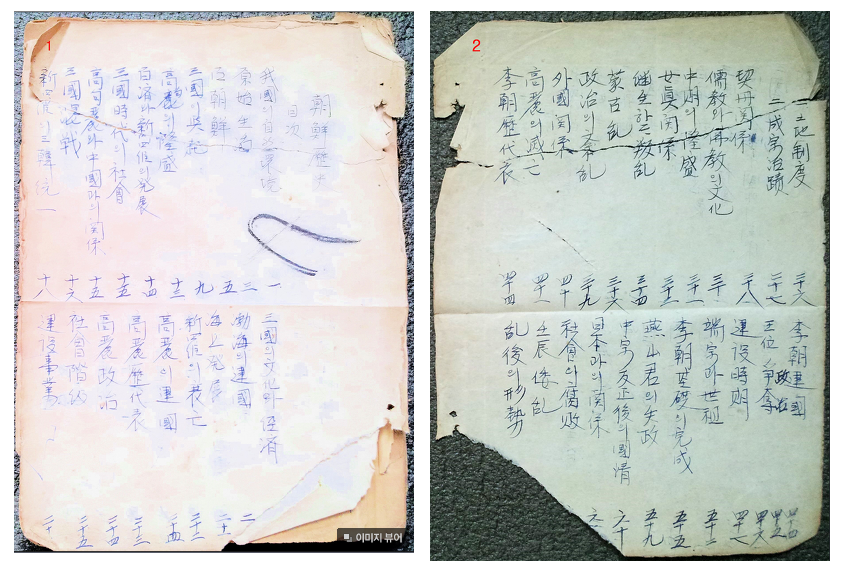 1
朝鮮歷史
目次
我國의自然環境 一
原始生活 三
古朝鮮 五
三國의興起 九
高句麗의隆盛 十三
百済와新羅의発展 十四
三國時代의社會 十五
高句麗와中國과의関係 十五
三國混戰 十六
新羅의三韓統一 十八
三國의文化와経済
渤海의建國
海上発展
新羅의衰亡 二十三
高麗의建國 二十四
高麗歷代表 二十三
高麗政治 二十四
社會階級 二十五
建設事業
이미지 뷰어
2
土地制度 二十六
二成宗治蹟 二十七
契丹関係 二十八
儒教와佛教의文化 三十
中期의隆盛 三十一
女眞関係 三十二
継生하는叛乱 三十四
蒙古乱 三十六
政治의紊乱 三十九
外國関係 四十
高麗의滅亡 四十一
李朝歷代表 四十四
李朝建國
政治
王位争奪
建設時期
端宗과世祖 五十二
李朝基礎의完成 五十五
燕山君의失政 五十九
中宗反正後의國情 六十
日本과의関係
社會의腐敗
壬辰倭乱
乱後의形勢